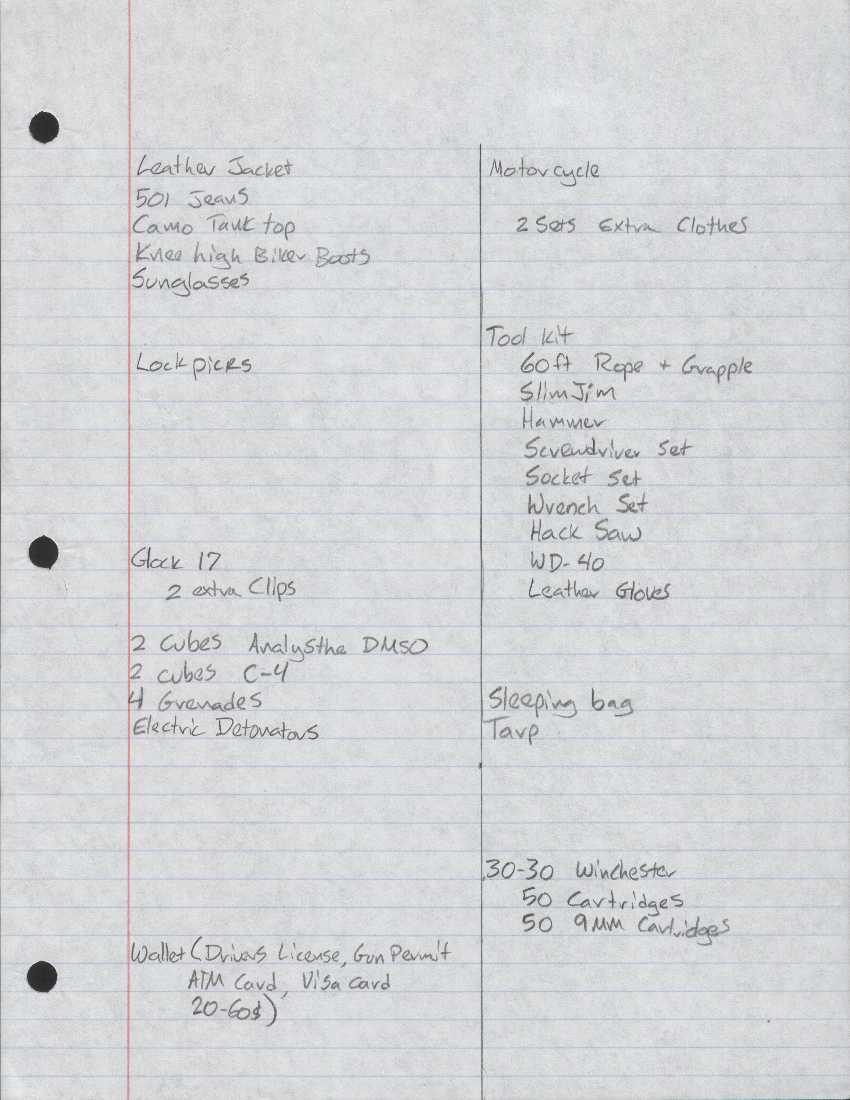 Leather Jacket
501 Jeans
Camo Tank top
Knee high Biker Boots
Sunglasses
Lockpicks
Glock 17
2 extra Clips
2 Cubes Analysthe DMSO
2 cubes C-4
4 Grenades
Electric Detonators
Wallet (Drivers License, Gun Permit
ATM Card, Visa card
20-60$)
Motorcycle
2 Sets Extra Clothes
Tool kit
60ft Rope + Grapple
SlimJim
Hammer
Screwdriver Set
Socket Set
Wrench Set
Hack Saw
WD-40
Leather Gloves
Sleeping bag
Tarp
30-30 Winchester
50 Cartridges
50 9MM Cartridges